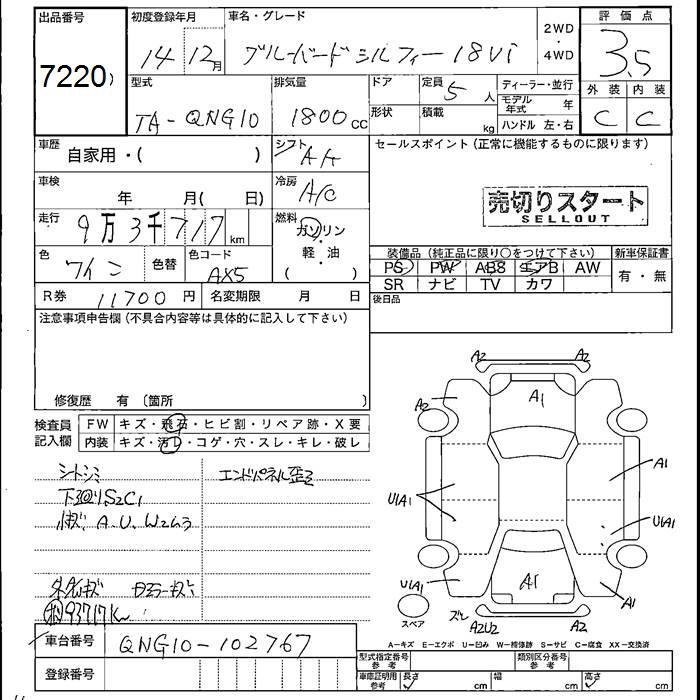 出品番号
7220)
初度登録年月
14年12月
車名・グレード
ブルーバードシルフィー 18Vi
2WD
・
4WD
評価点
3.5
外装 内装
C C
型式
TA-QNG10
排気量
1800cc
ドア
形状
定員 5人
積載 kg
ディーラー・並行
モデル年式 年
ハンドル 左・右
車歴 自家用・( )
シフト
A/t
車検 年 月( 日)
冷房
A/C
走行 9万3千717km
燃料
ガソリン
・
軽・油
( )
色 ワイン
色替
色コード
AX5
R券 11700円
名変期限 月 日
セールスポイント(正常に機能するものに限ります)
売切りスタート
SELLOUT
装備品(純正品に限り○をつけて下さい)
PS PW AB8 エアB AW
SR ナビ TV カワ
新車保証書
有・無
後日品
注意事項申告欄(不具合内容等は具体的に記入して下さい)
修復歴 有〔箇所 〕
検査員
記入欄
FW キズ・飛石・ヒビ割・リペア跡・X要
内装 キズ・汚レ・コゲ・穴・スレ・キレ・破レ
シートシミ
下廻りS2C1
小キズ、A.U.W2ム3
エンドパネル歪ミ
93717Km
車台番号 QNG10-102767
登録番号
A2 A2
A2
A1
A1
U1A1
U1A1
U1A1
A1
A1
スペア
ズレ
A2U2
A2
A-キズ E-エクボ U-凹み W-補修跡 S-サビ C-腐食 XX-交換済
型式指定番号
参考
類別区分番号
参考
車庫証明用
参考
長さ cm
幅 cm
高さ cm